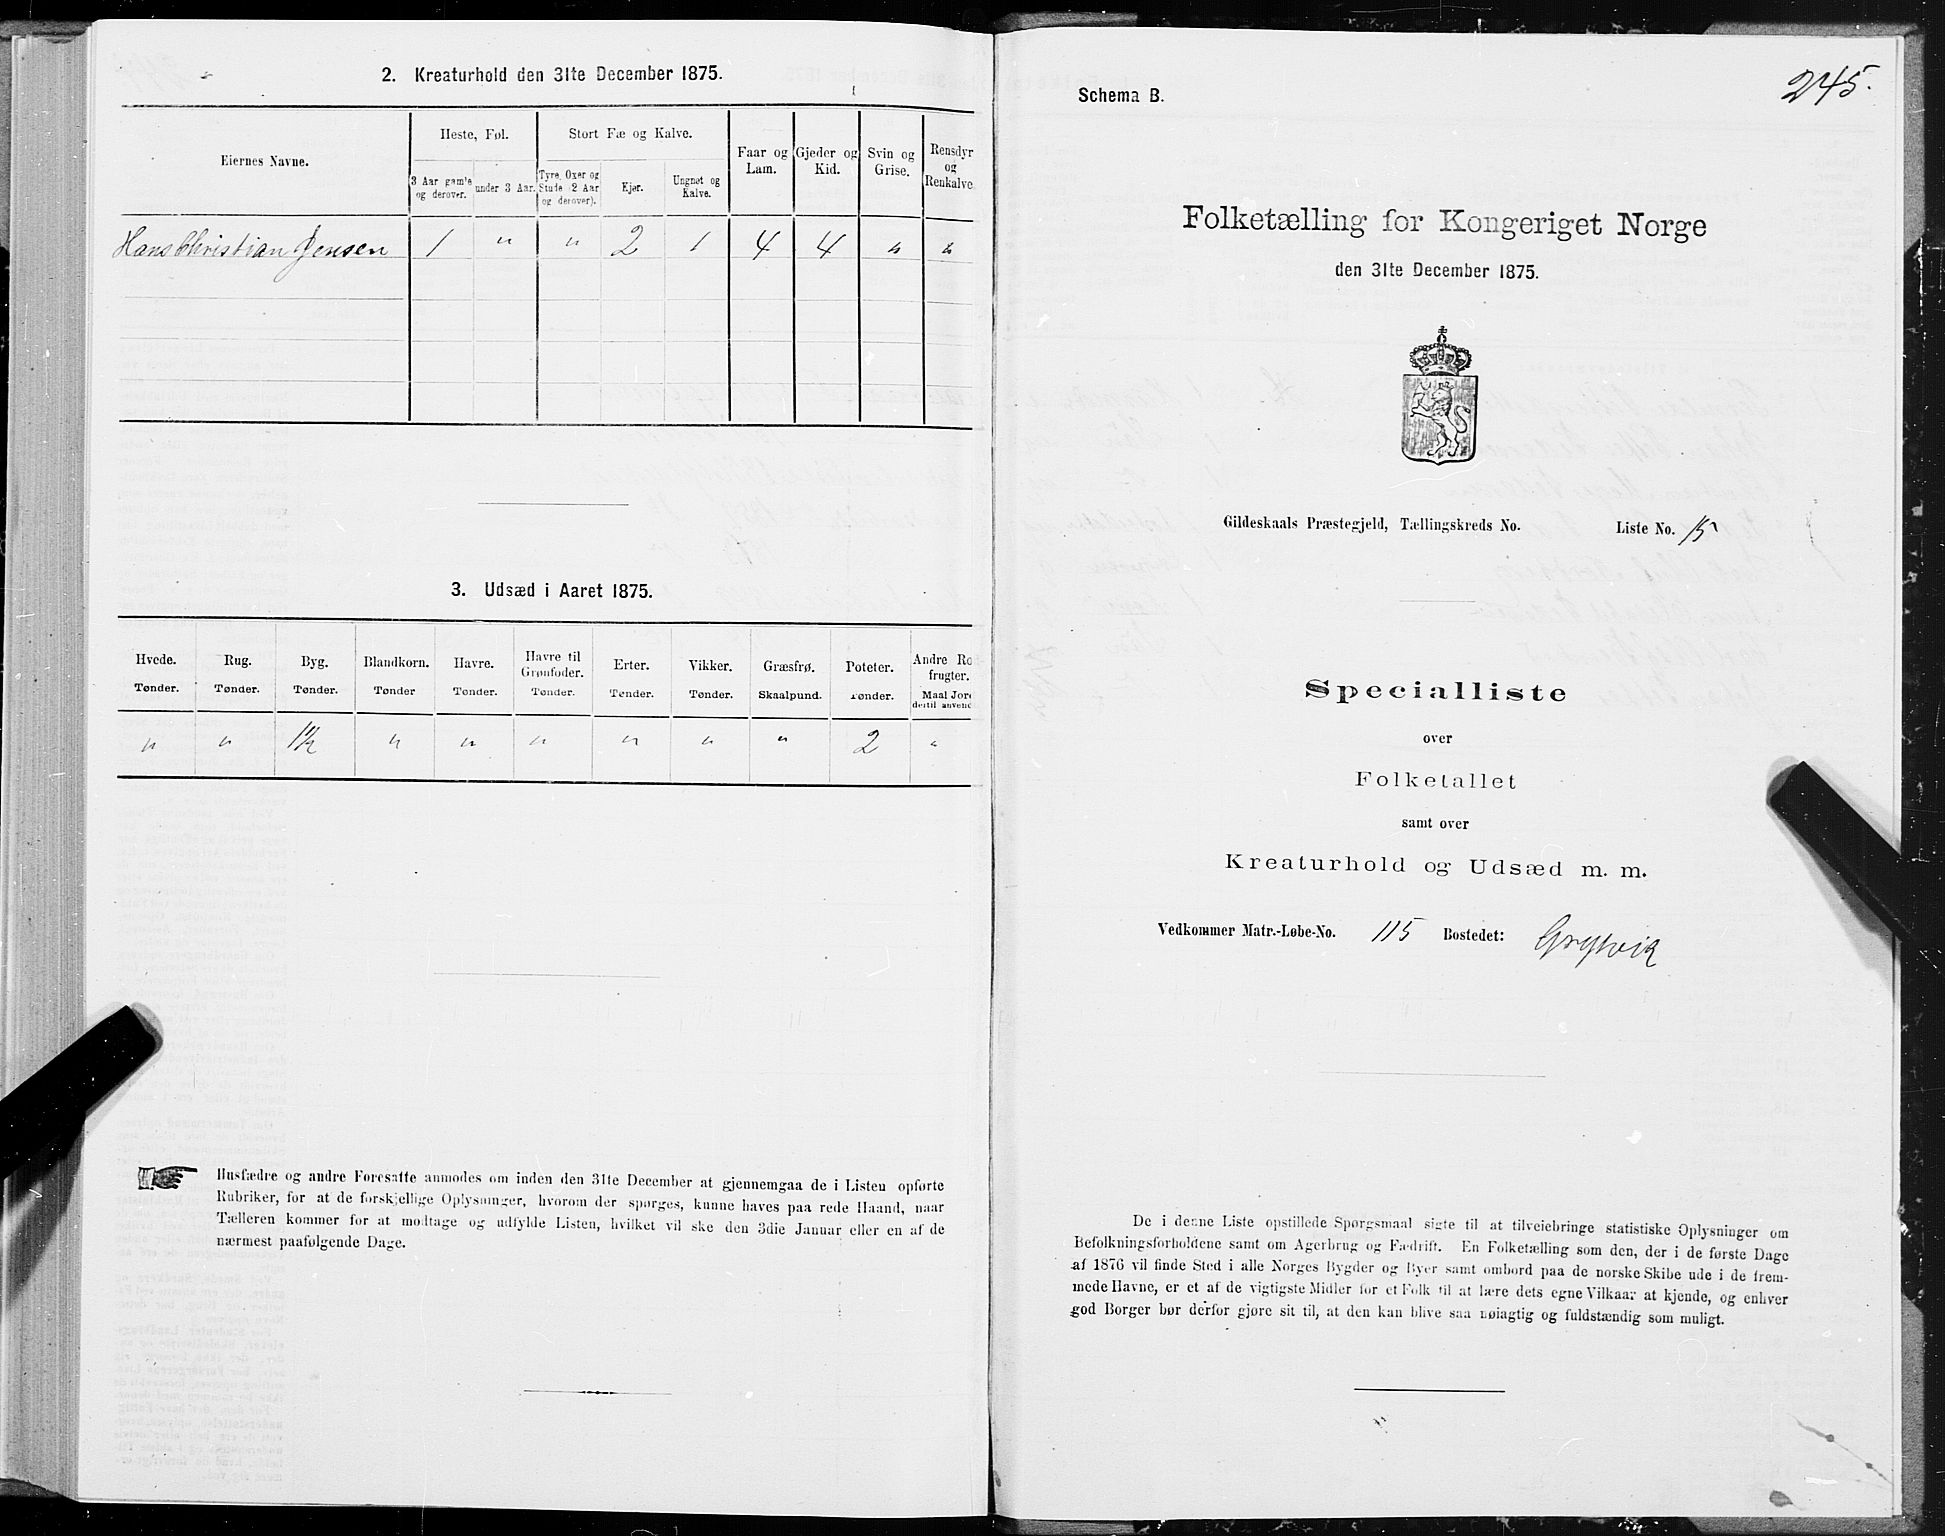 2. Kreaturhold den 31te December 1875.
Eiernes Navne.
Heste, Føl.
Stort Fæ og Kalve.
Faar og Lam.
Gjeder og Kid.
Svin og Grise.
Rensdyr og Renkalve
3 Aar gamle og derover.
under 3 Aar.
Tyre, Oxer og Stude (2 Aar og derover).
Kjør.
Ungnøt og Kalve.
Hans Christian Jensen 1 " " 2 1 4 4 " "
3. Udsæd i Aaret 1875.
Hvede. Tønder.
Rug. Tønder.
Byg. Tønder.
Blandkorn. Tønder
Havre. Tønder.
Havre til Grønfoder. Tønder.
Erter. Tønder.
Vikker. Tønder.
Græsfrø. Skaalpund.
Poteter. Tønder.
Andre Ro frugter. Maal Jord dertil anvend
" " 1½ " " " " " " 2 "
Husfædre og andre Foresatte anmodes om inden den 31te December at gjennemgaa de i Listen opførte
Rubriker, for at de forskjellige Oplysninger, hvorom der spørges, kunne haves paa rede Haand, naar
Tælleren kommer for at modtage og udfylde Listen, hvilket vil ske den 3die Januar eller en af de
nærmest paafølgende Dage.
245.
Schema B.
Folketælling for Kongeriget Norge
den 31te December 1875.
Gildeskaals Præstegjeld, Tællingskreds No. Liste No. 15
Specialliste
over
Folketallet
samt over
Kreaturhold og Udsæd m. m.
Vedkommer Matr.-Løbe-No. 115 Bostedet:
De i denne Liste opstillede Spørgsmaal sigte til at tilveiebringe statistiske Oplysninger om
Befolkningsforholdene samt om Agerbrug og Fædrift. En Folketælling som den, der i de første Dage
af 1876 vil finde Sted i alle Norges Bygder og Byer samt ombord paa de norske Skibe ude i de frem-
mede Havne, er et af de vigtigste Midler for et Folk til at lære dets egne Vilkaar at kjende, og enhver
god Borger bør derfor gjøre sit til, at den kan blive saa nøiagtig og fuldstændig som muligt.